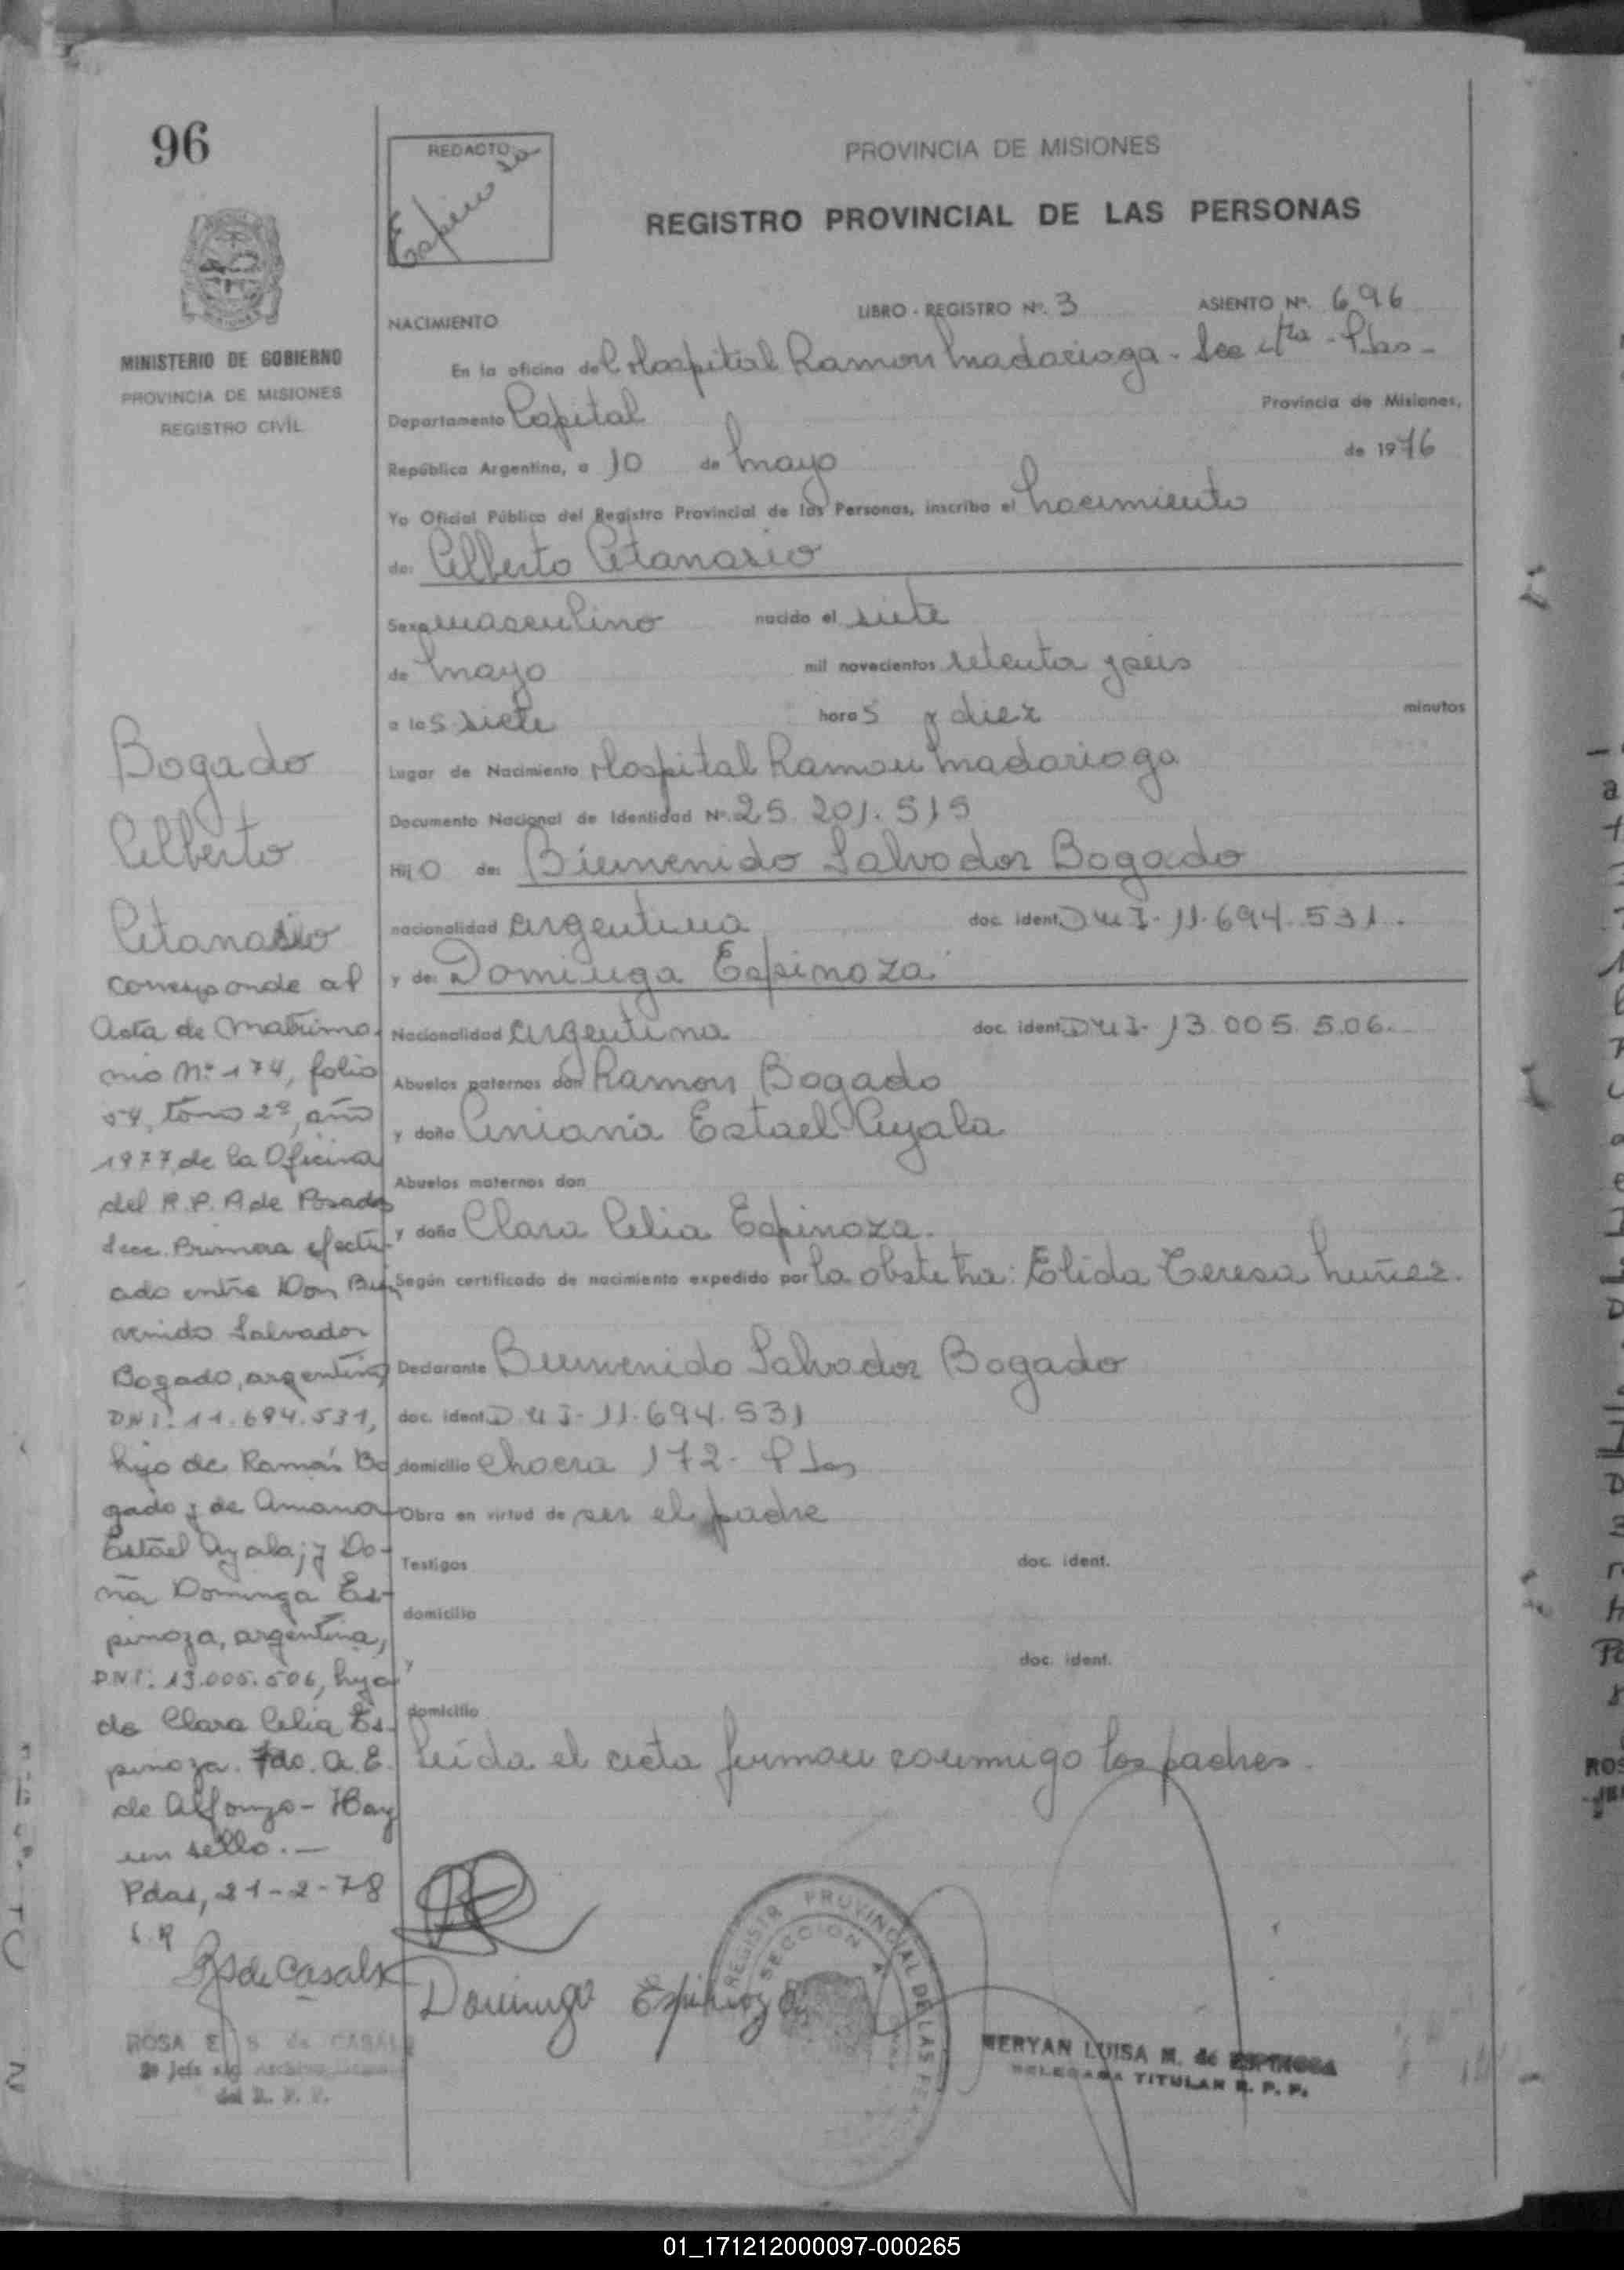 96
REDACTO
Espinoza
PROVINCIA DE MISIONES
REGISTRO PROVINCIAL DE LAS PERSONAS
MINISTERIO DE GOBIERNO
PROVINCIA DE MISIONES
REGISTRO CIVIL
NACIMIENTO LIBRO - REGISTRO Nº. 3 ASIENTO Nº. 696
En la oficina del Hospital Ramon Madariaga - Sec 4ta - Pdas -
Departamento Capital Provincia de Misiones,
República Argentina, a 10 de mayo de 1976
Yo Oficial Público del Registro Provincial de las Personas, inscribo el nacimiento
de: Alberto Atanasio
Sexo masculino nacido el siete
de mayo mil novecientos setenta y seis
a las siete horas y diez minutos
Lugar de Nacimiento Hospital Ramon Madariaga
Documento Nacional de Identidad Nº. 25.201.515
Hijo de: Bienvenido Salvador Bogado
nacionalidad argentina doc. ident. DNI- 11.694.531.
y de: Dominga Espinoza
Nacionalidad argentina doc. ident. DNI- 13.005.506.
Abuelos paternos don Ramon Bogado
y doña Aniana Estael Ayala
Abuelos maternos don
y doña Clara Celia Espinoza.
Según certificado de nacimiento expedido por la obstetra: Elida Teresa Nuñez.
Declarante Bienvenido Salvador Bogado
doc. ident. DNI- 11.694.531
domicilio chacra 172- Pdas
Obra en virtud de ser el padre
Testigos doc. ident.
domicilio
y doc. ident.
domicilio
Leida el acta firman conmigo los padres.
Dominga Espinoza
REGISTRO PROVINCIAL DE LAS PE
SECCION
MERYAN LUISA M. de ESPINOSA
DELEGADA TITULAR R. P. P.
Bogado
Alberto
Atanasio
corresponde al
Acta de Matrimo-
nio Nº 174, folio
54, tomo 2º, año
1977, de la Oficina
del R.P.P. de Posadas
Secc. Primera efectu-
ado entre Don Bien
venido Salvador
Bogado, argentino,
DNI: 11.694.531,
hijo de Ramón Bo
gado y de Aniana
Estael Ayala; y Do-
ña Dominga Es-
pinoza, argentina,
DNI: 13.005.506, hija
de Clara Celia Es-
pinoza. Fdo. A. E.
de Alfonzo - Hay
un sello. -
Pdas, 21-2-78
S. de Casals
ROSA E. S. de CASALS
2º Jefe Archivo
del R. P. P.
01_171212000097-000265